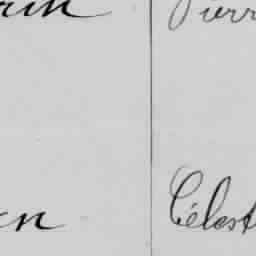 rin Pierr
en Célest